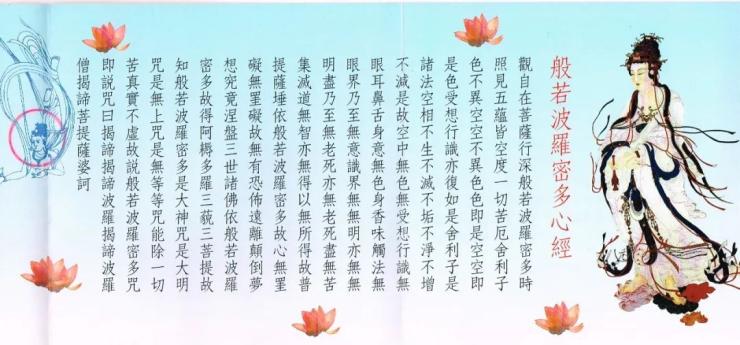 般若波羅密多心經
觀自在菩薩行深般若波羅密多時
照見五蘊皆空度一切苦厄舍利子
色不異空空不異色色即是空空即
是色受想行識亦復如是舍利子是
諸法空相不生不滅不垢不淨不增
不減是故空中無色無受想行識無
眼耳鼻舌身意無色身香味觸法無
眼界乃至無意識界無無明亦無無
明盡乃至無老死亦無老死盡無苦
集滅道無智亦無得以無所得故普
提薩埵依般若波羅密多故心無罣
礙無罣礙故無有恐佈遠離顛倒夢
想究竟涅盤三世諸佛依般若波羅
密多故得阿耨多羅三藐三菩提故
知般若波羅密多是大神咒是大明
咒是無上咒是無等等咒能除一切
苦真實不虛故說般若波羅密多咒
即說咒曰揭諦揭諦波羅揭諦波羅
僧揭諦菩提薩婆訶